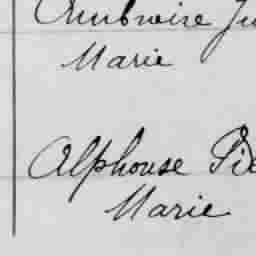 Ambroise Ju
Marie
Alphonse Pie
Marie